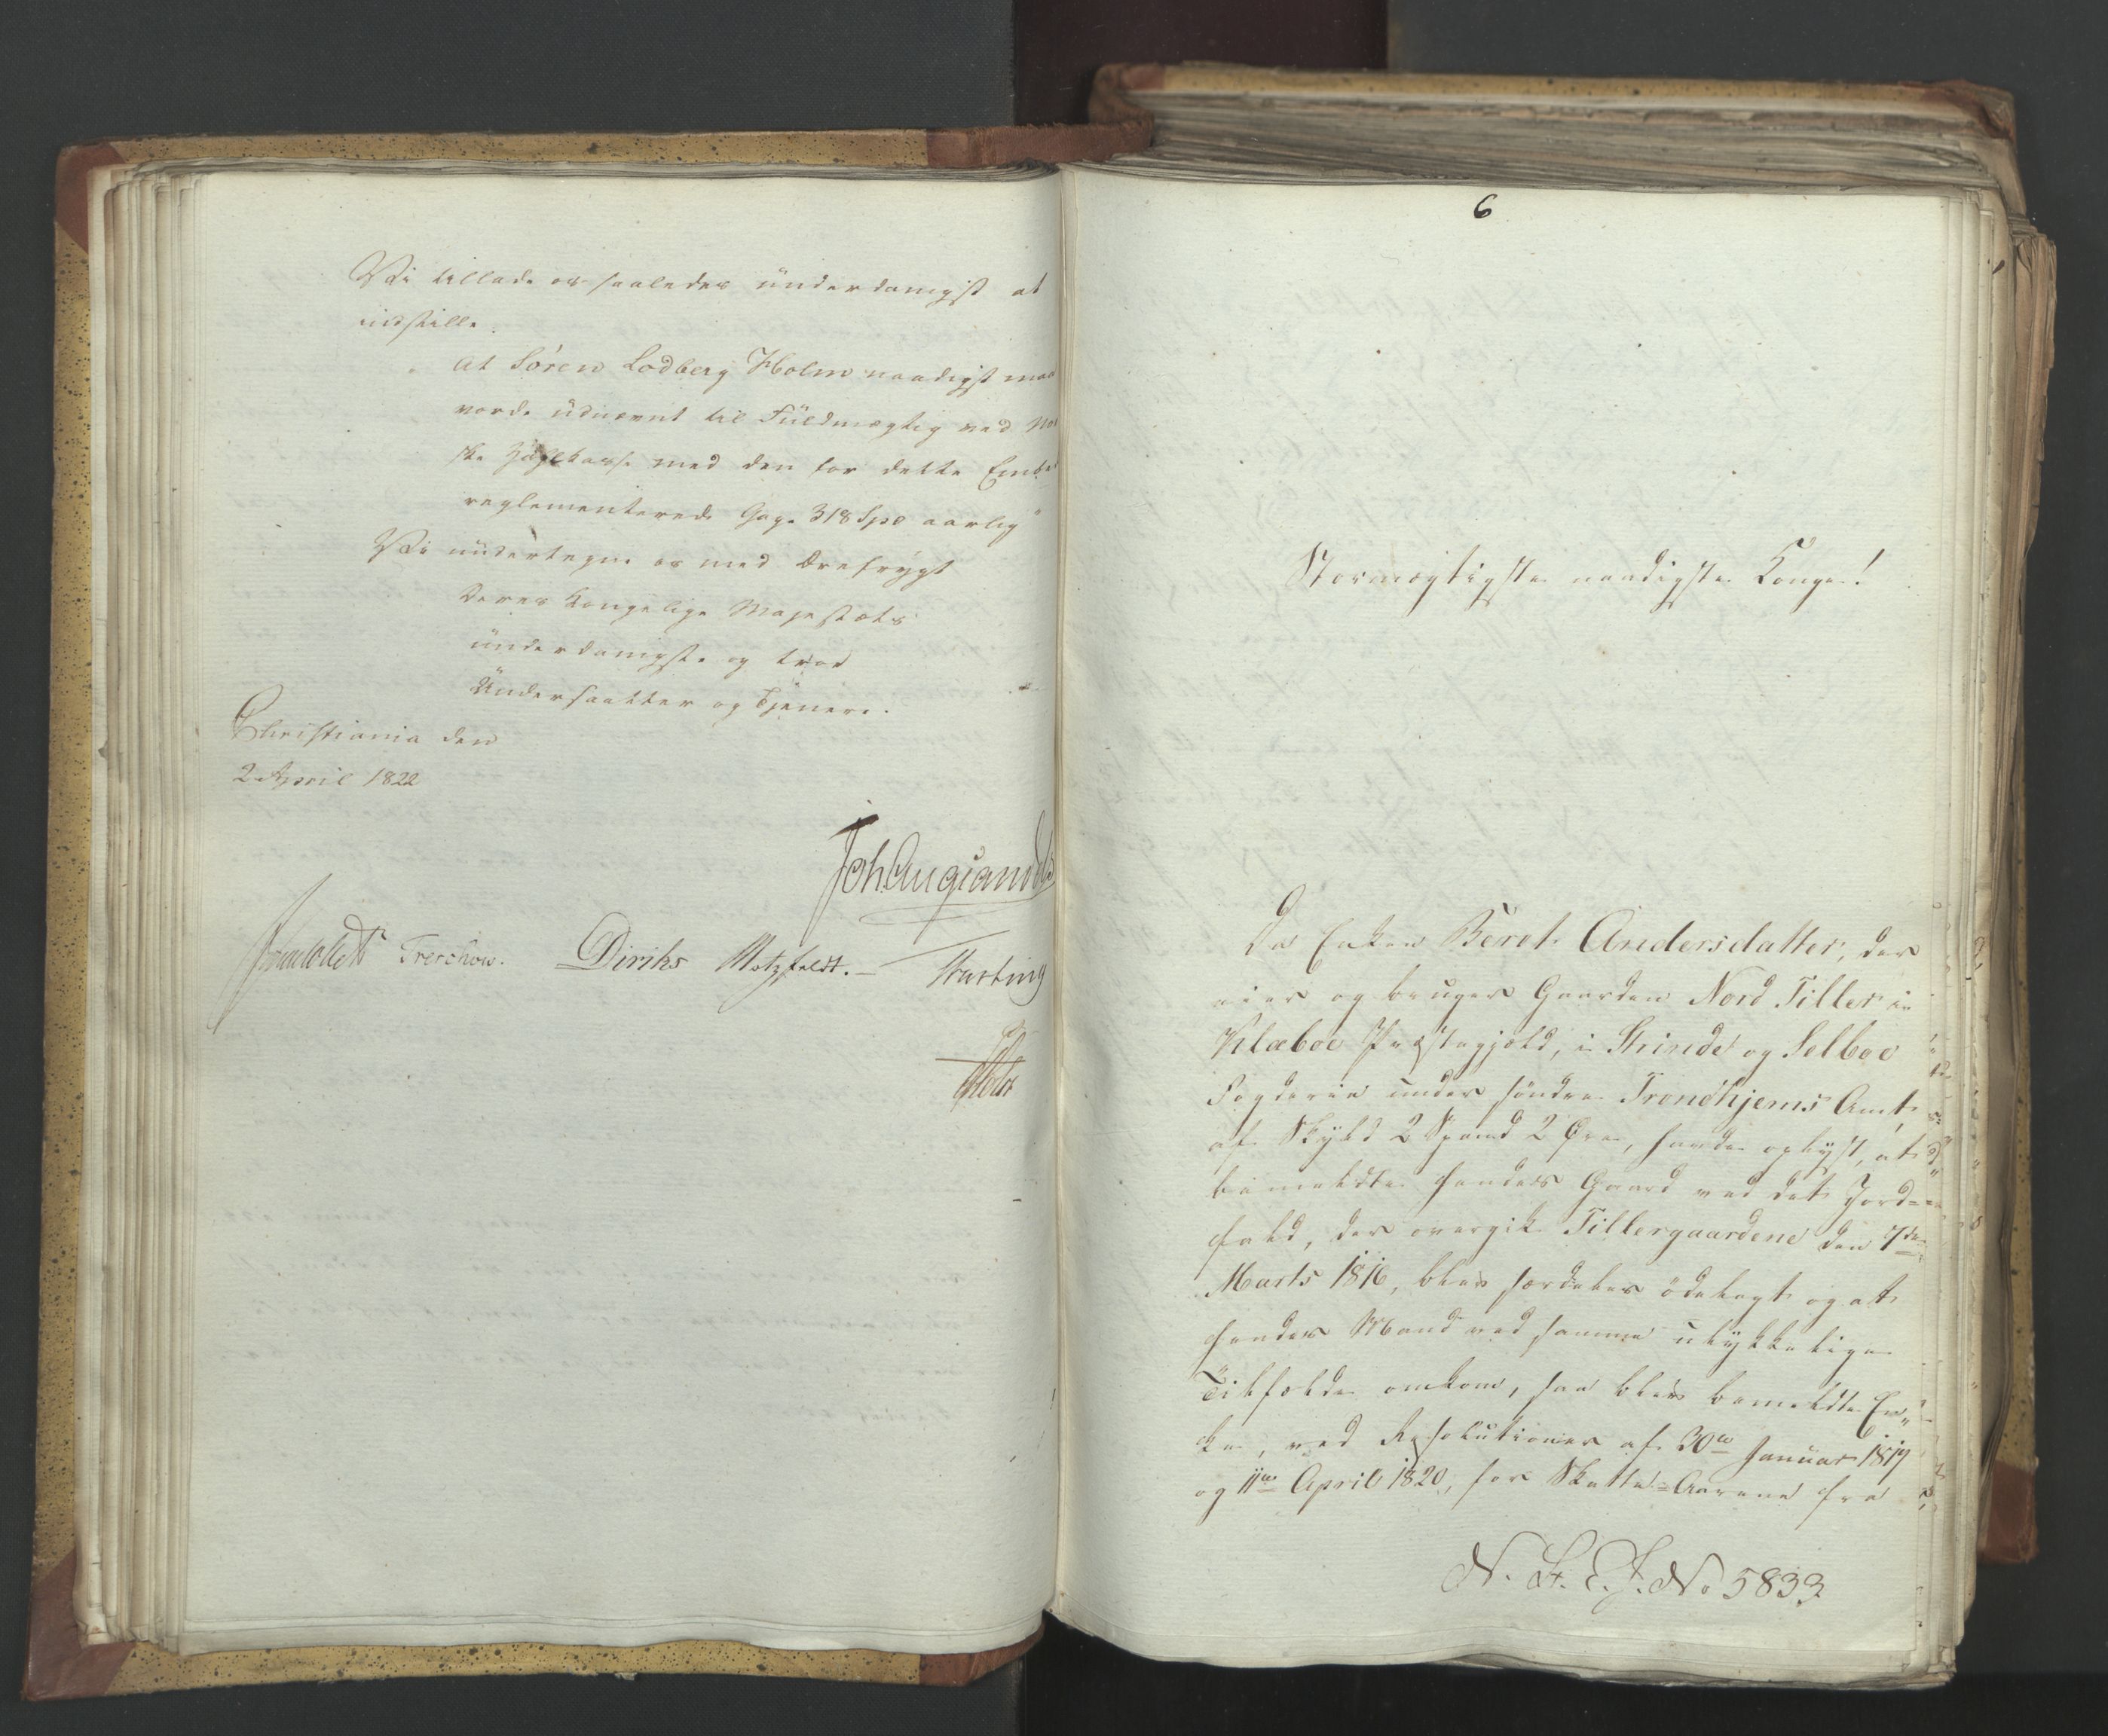 Vi tillade os saaledes underdanigst at
indstille.
at Sören Lodberg Holm naadigst maa
vorde udnævnt til Fuldmægtig ved
ske med den for dette
reglementerede Gage 318 Spd aarlig"
Vi undertegne os med Ærefrygt
Deres Kongelige Majestæts
underdanigste og troe
Undersaatter og Tjenere.
Christiania den
2 April 1822
Joh Aug Sandels
Treschow. Diriks Motzfeldt.
6
Stormægtigste naadigste Konge!
Da Enken Beret Andersdatter, der
eier og bruger Gaarden Nord Tiller i
Klæboe Præstegjeld, i Strinde og Selboe
Fogderie under söndre Trondhjems Amt,
af Skyld 2 Spand 2 Öre, havde oplyst, at
bemeldte hendes Gaard ved det Jord-
fald, der overgik Tillergaardene den 7de
Marts 1816, blev særdeles ödelagt og at
hendes Mand ved samme ulykkelige
Tilfælde omkom, saa blev bemeldte En-
ke, ved Resolutioner af 30te Januar 1819
og 11te April 1820, for Skatte-Aarene fra
No 5833